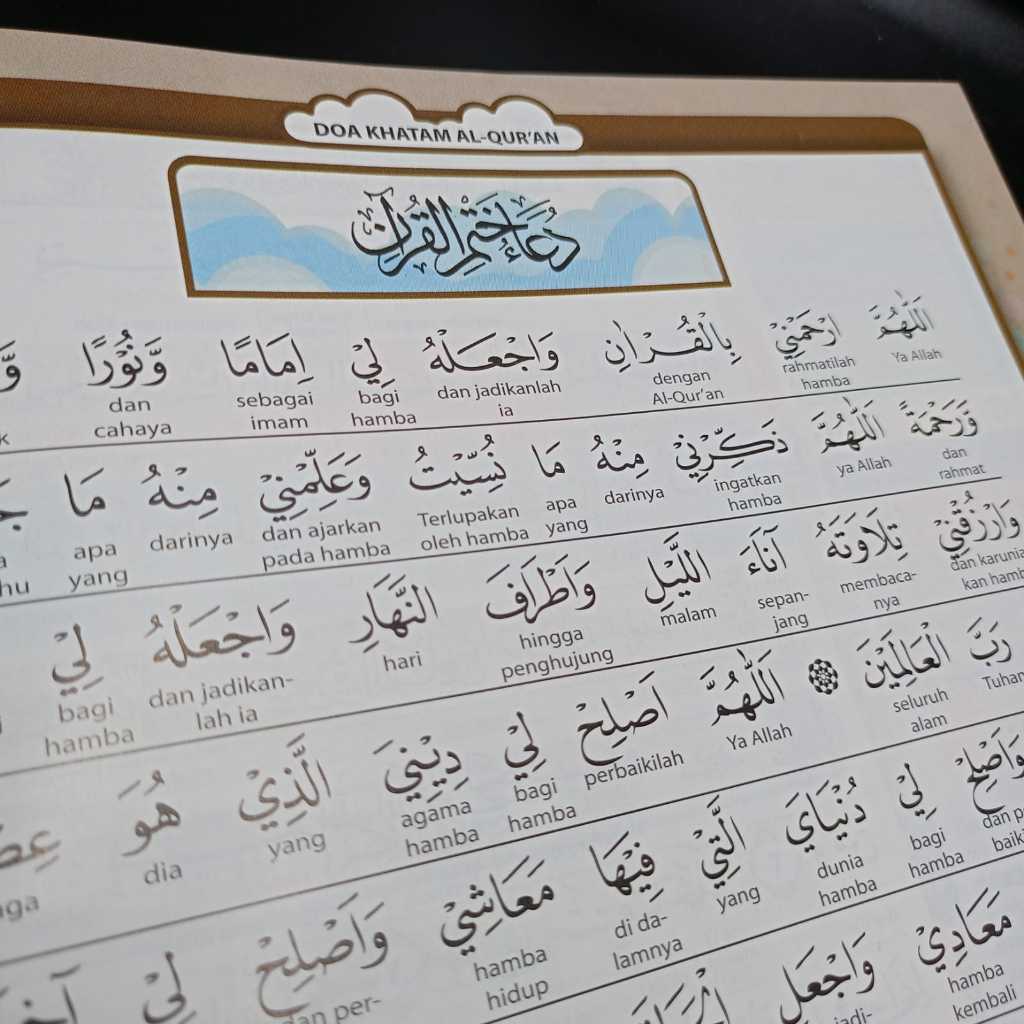 DOA KHATAM AL-QUR'AN
دُعَاءُ خَتْمِ الْقُرْآنِ
اَللّٰهُمَّ ارْحَمْنِيْ بِالْقُرْاٰنِ وَاجْعَلْهُ لِيْ اِمَامًا وَّنُوْرًا
Ya Allah rahmatilah hamba dengan Al-Qur'an dan jadikanlah ia bagi hamba sebagai imam dan cahaya
وَّرَحْمَةً اَللّٰهُمَّ ذَكِّرْنِيْ مِنْهُ مَا نُسِّيْتُ وَعَلِّمْنِيْ مِنْهُ مَا
dan rahmat ya Allah ingatkan hamba darinya apa yang Terlupakan oleh hamba dan ajarkan pada hamba darinya apa yang
وَارْزُقْنِيْ تِلَاوَتَهُ آنَاءَ اللَّيْلِ وَاَطْرَافَ النَّهَارِ وَاجْعَلْهُ لِيْ
dan karunia- kan hamba membaca- nya sepan- jang malam hingga penghujung hari dan jadikan- lah ia bagi hamba
رَبَّ الْعَالَمِيْنَ اَللّٰهُمَّ اَصْلِحْ لِيْ دِيْنِيَ الَّذِيْ هُوَ
Tuhan seluruh alam Ya Allah perbaikilah bagi hamba agama hamba yang dia
وَاَصْلِحْ لِيْ دُنْيَايَ الَّتِيْ فِيْهَا مَعَاشِيْ وَاَصْلِحْ لِيْ
bagi hamba dunia hamba yang di da- lamnya hamba hidup dan per-
مَعَادِيْ وَاجْعَلِ
hamba kembali